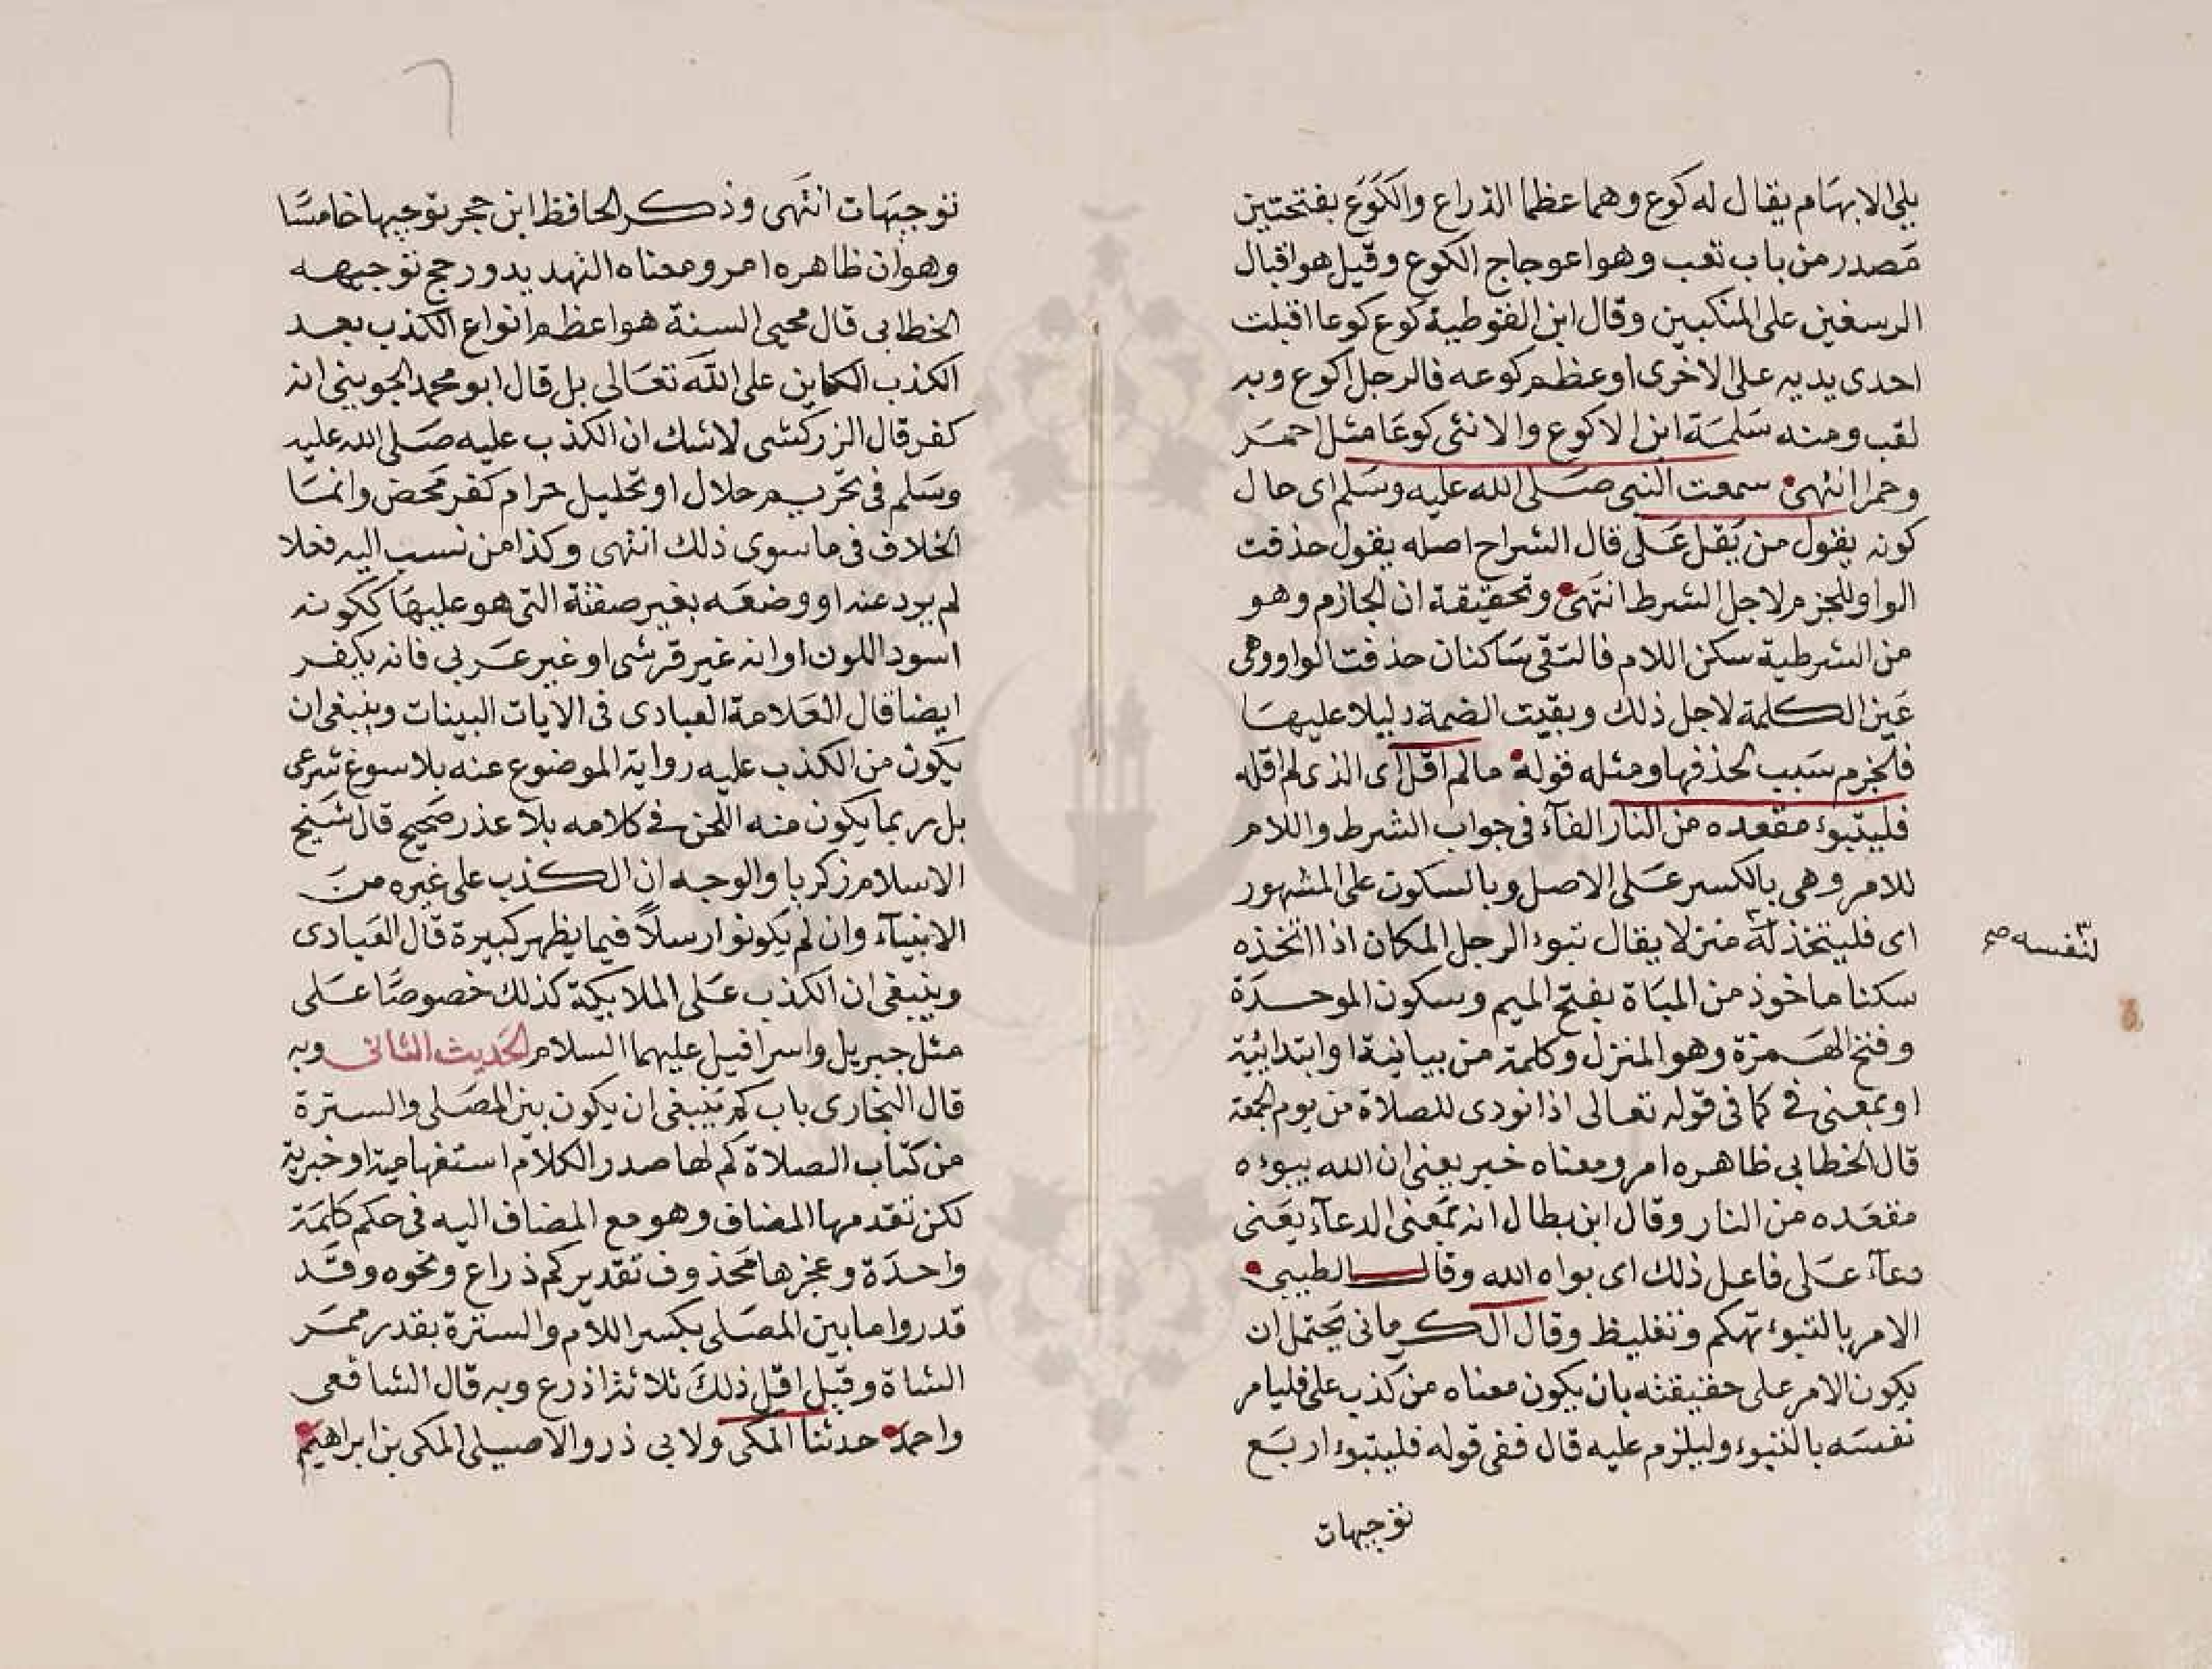 يلي الابهام يقال له كوع وهما عظما الذراع والكَوَع بفتحتين
مَصدر من باب تعب وهو اعوجاج الكوع وقيل هو اقبال
الرسغين على المنكبين وقال ابن القوطية كوع كوعا اقبلت
احدى يديه على الاخرى او عظم كوعه فالرجل اكوع وبه
لقب ومنه سَلمَة ابن الاكوع والانثى كوعَا مثل احمر
وحمرا انتهى سمعت النبي صَلى الله عليه وسَلم اى حال
كونه يقول من يَقل عَلى قال الشراح اصله يقول حذفت
الواو للجزم لاجل الشرط انتهَى وتحقيقة ان الجازم وهو
من الشرطية سكن اللام فالتقى سَاكنان حذفت الواو وهى
عَين الكلمة لاجل ذلك وبقيت الضمة دليلا عليهَا
فالجزم سَبب لحذفها ومثله قوله ما لم اقل اى الذى لم اقله
فليتبوء مقعده من النار الفآء فى جواب الشرط واللام
للامر وهى بالكسر عَلى الاصل وبالسكون على المشهور
اى فليتخذ له منزلا يقال تبوء الرجل المكان اذا اتخذه
لنفسه صح
سكنا ماخوذ من المبَاة بفتح الميم وسكون الموحدَة
وفتح الهَمزة وهو المنزل وكلمة من بيانية او ابتدائية
او بمعنى فى كما فى قوله تعالى اذا نودى للصلاة من يوم الجمعة
قال الخطابى ظاهره امر ومعناه خبر يعنى ان الله يبوءه
مقعَده من النار وقال ابن بطال انه بمَعنى الدعآء يعَنى
دعآء عَلى فاعل ذلك اى بواه الله وقال الطيبى
الامر بالتبوء تهكم وتغليظ وقال الكرمانى يحتمل ان
يكون الامر على حقيقته بان يكون معناه من كذب على فليامر
نفسَه بالتبوء وليلزم عليه قال ففى قوله فليتبوء اربَع
توجيهات
توجيهَات انتهَى وذكر الحافظ ابن حجر توجيها خامسًا
وهو ان ظاهره امر ومعناه التهديد ورجح توجيهه
الخطابى قال محيي السنة هو اعظم انواع الكذب بعد
الكذب الكاين على الله تعَالى بل قال ابو محمد الجوينى انه
كفر قال الزركشى لا شك ان الكذب عليه صَلى الله عليه
وسَلم فى تحريم حلال او تحليل حرام كفر محَض وانمَا
الخلاف فى ما سوى ذلك انتهى وكذا من نسب اليه فعلا
لم يرد عنه او وضعَه بغير صفته التى هو عليهَا ككونه
اسود اللون او انه غير قرشى او غير عَربى فانه يكفر
ايضا قال العَلامة العبادى فى الايات البينات وينبغى ان
يكون من الكذب عليه رواية الموضوع عنه بلا سوغ شرعى
بل ربما يكون منه اللحن فى كلامه بلا عذر صَحيح قال شيَخ
الاسلام زكريا والوجه ان الكذب على غيره من
الانبيآء وان لم يكونوا رسلًا فيما يظهر كبيرة قال العَبادى
وينبغى ان الكذب عَلى الملايكة كذلك خصوصًا عَلى
مثل جبريل واسرافيل عليهما السلام الحَديث الثانى وبه
قال البخارى باب كم ينبغى ان يكون بين المصَلى والسترة
من كتاب الصلاة كم لها صدر الكلام استفهامية او خبرية
لكن تقدمها المضاف وهو مع المضاف اليه فى حكم كلمَة
واحدَة ومعجزها محَذوف تقديركم ذراع ونحوه وقَد
قدروا ما بين المصَلى بكسر اللام والسترة بقدر ممَر
الشاة وقيل اقل ذلكَ ثلاثة اذرع وبه قال الشافعى
واحمد حدثنا المكى ولابى ذر والاصيلى المكى بن ابراهيم